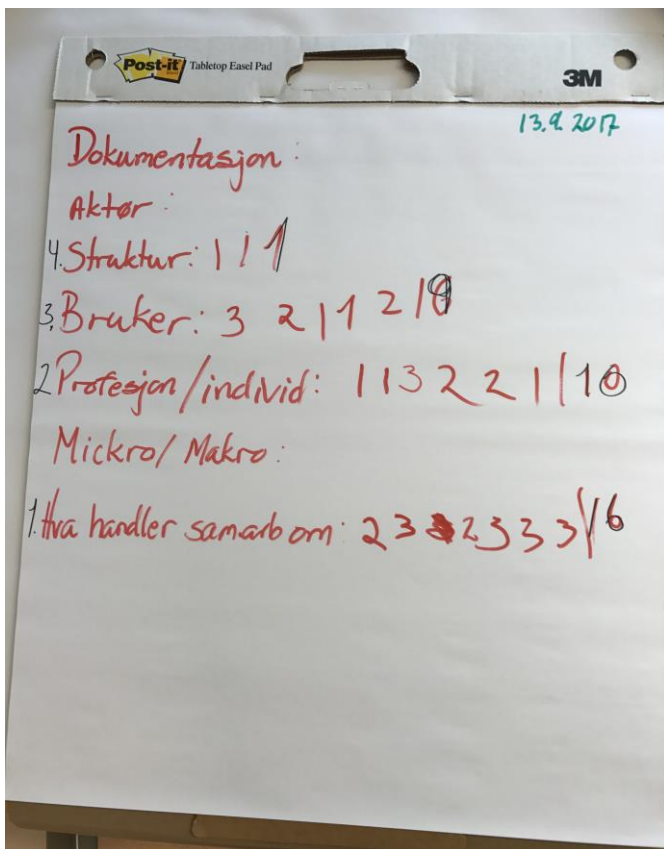 Post-it Tabletop Easel Pad
3M
13.9.2017
Dokumentasjon:
Aktør:
4. Struktur: 1 1 1
3. Bruker: 3 2 1 1 2 | 9
2 Profesjon/individ: 1 1 3 2 2 1 | 10
Mickro/Makro:
1. Hva handler samarb om: 2 3 2 3 3 3 | 16